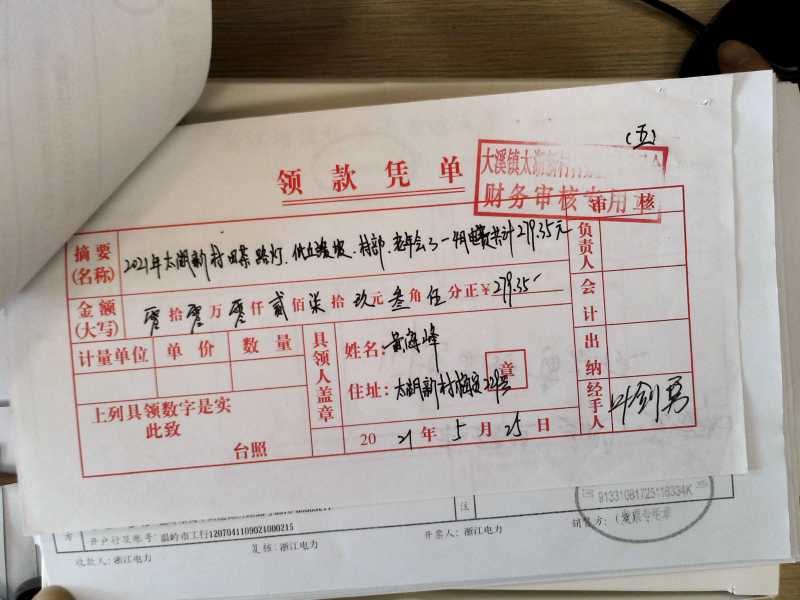 (五)
领款凭单
大溪镇太湖新村
财务审核专用
审核
摘要(名称)
2021年太湖新村田茶路灯.
村部.老年会 电费共计279.35元
金额(大写) 零拾零万零仟贰佰柒拾玖元叁角伍分正¥279.35
计量单位 单价 数量
具领人盖章
姓名: 峰
住址: 太湖新村 229号
章
上列具领数字是实
此致
台照
2021年5月25日
负责人
会计
出纳
经手人 叶剑勇
方
开户行及账号: 温岭市工行1207041109024000215
注
收款人: 浙江电力
复核: 浙江电力
开票人: 浙江电力
销售方: (
91331081725118334K
发票专用章